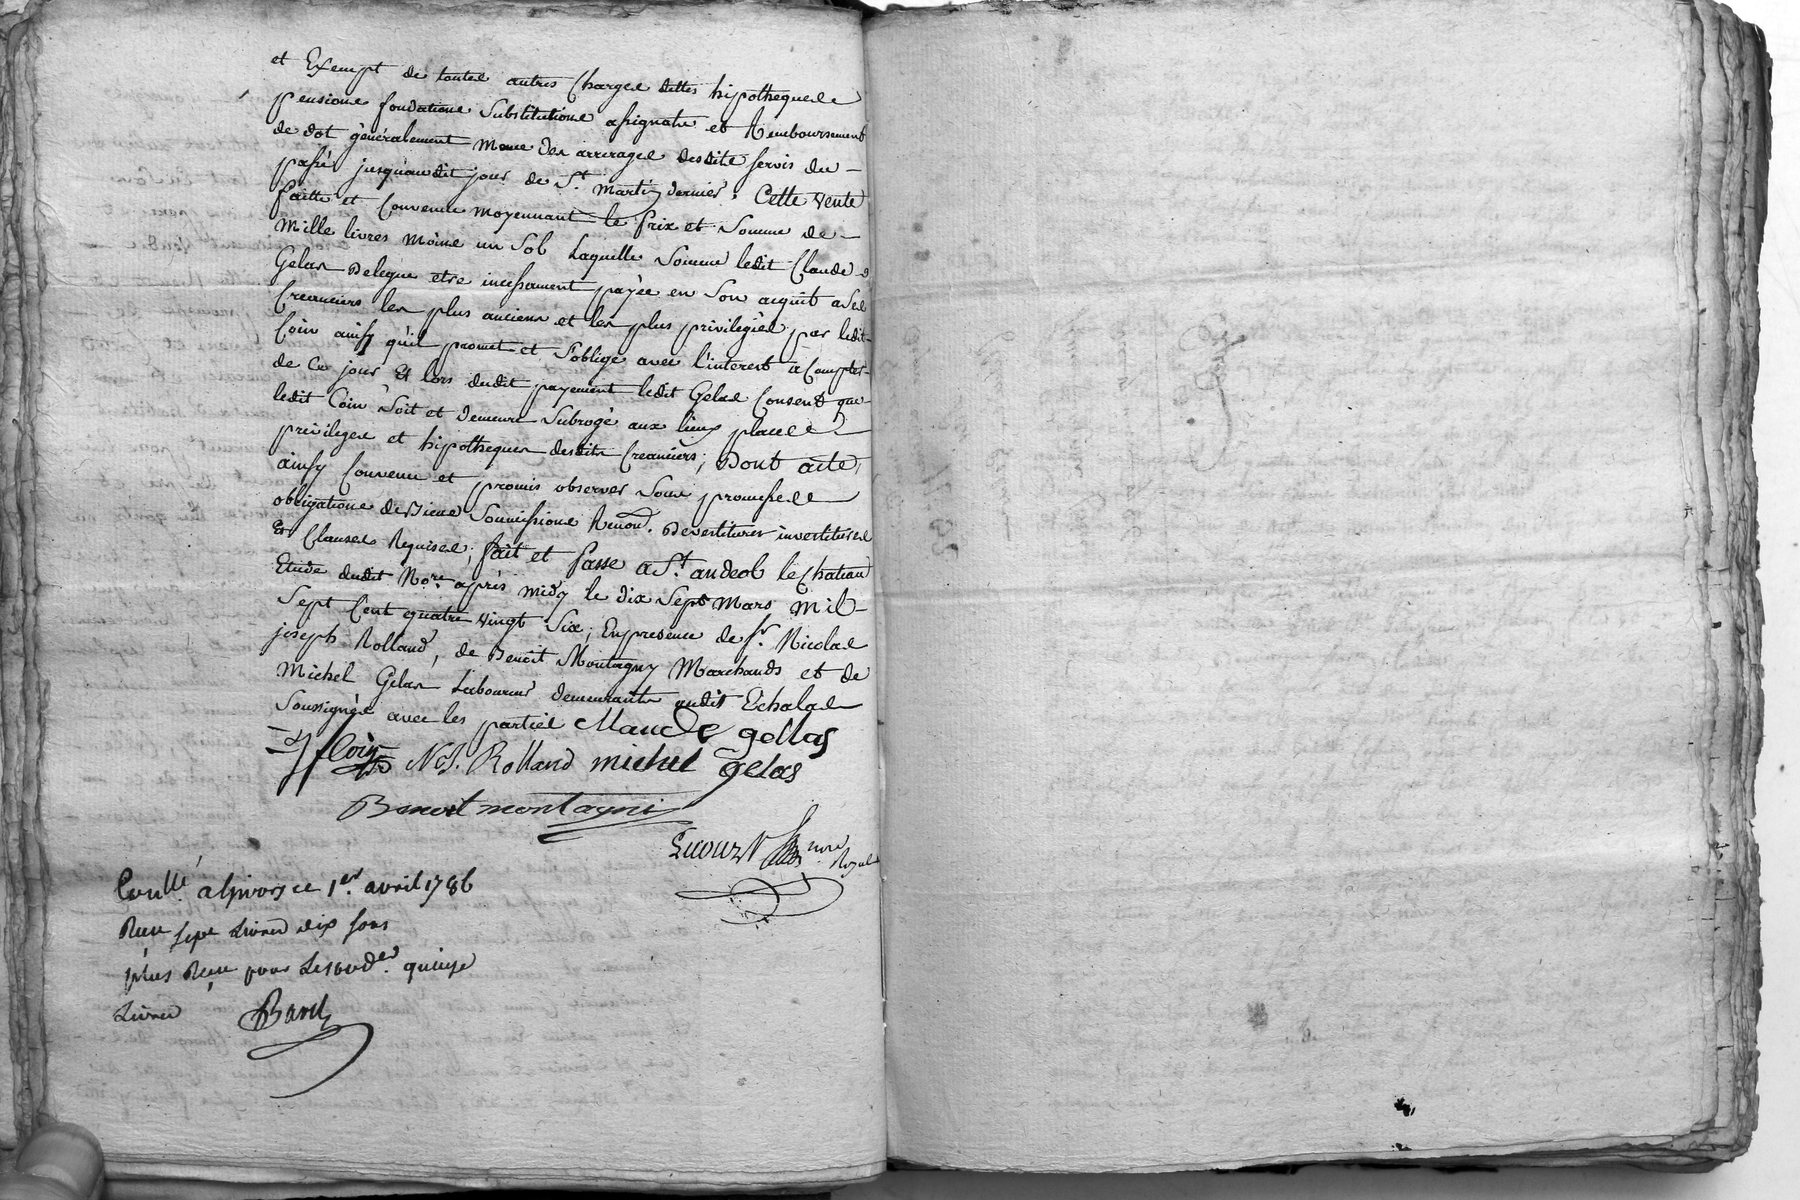 et Exempt de toutes autres Charges dettes hipotheques
pensions fondations Substitutions assignats et Remboursement
de dot généralement meme des arrerages desdits servis du
passé jusquaudit jour de St. Martin dernier. Cette vente
faitte et Convenue moyennant le prix et Somme de
Mille livres moins un Sol Laquelle Somme ledit Claude
Gelas Delegue etre incessament payée en Son acquit a ses
Creanciers les plus anciens et les plus privilegiés par ledit
Coin ainsy qu'il promet et S'oblige avec l'interest a Compter
de Ce jour Et lors dudit payement ledit Gelas Consent que
ledit Coin Soit et demeure Subrogé aux lieux places
privileges et hipotheques desdits Creanciers; Dont acte,
ainsy Convenu et promis observer Sous promesses
obligations de Biens Soumissions Renon. Devestitures investitures
Et Clauses Requises; fait et Passé a St. andeol le Chateau
Etude dudit No.re après midy le dix Sept Mars Mil
Sept Cent quatre vingt Six; En presence de Sr. Nicolas
joseph Rolland, de Benoit Montagny Marchands et de
Michel Gelas Laboureur demeurants audit Echalas
Soussignés avec les parties Claude gellas
Coin N J. Rolland michel gelas
Benoit montagni
nore Royal
Conllé. a Givors ce 1er. avril 1786
Reçu sept Livres dix sous
plus Reçu pour Les 
quinze
Livres